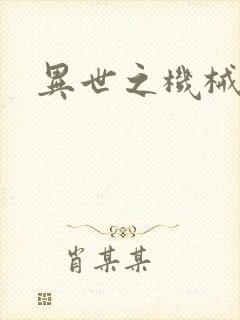 異世之機械
肖某某